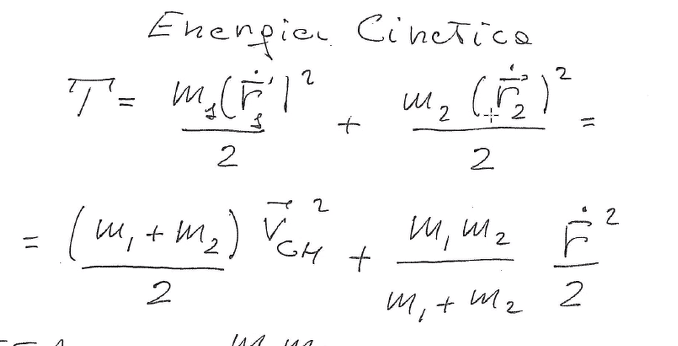 Energia Cinetica
T = m₁(ṙ⃗₁)²/2 + m₂(ṙ⃗₂)²/2 =
= (m₁+m₂)/2 V⃗_CM² + m₁m₂/(m₁+m₂) ṙ⃗²/2